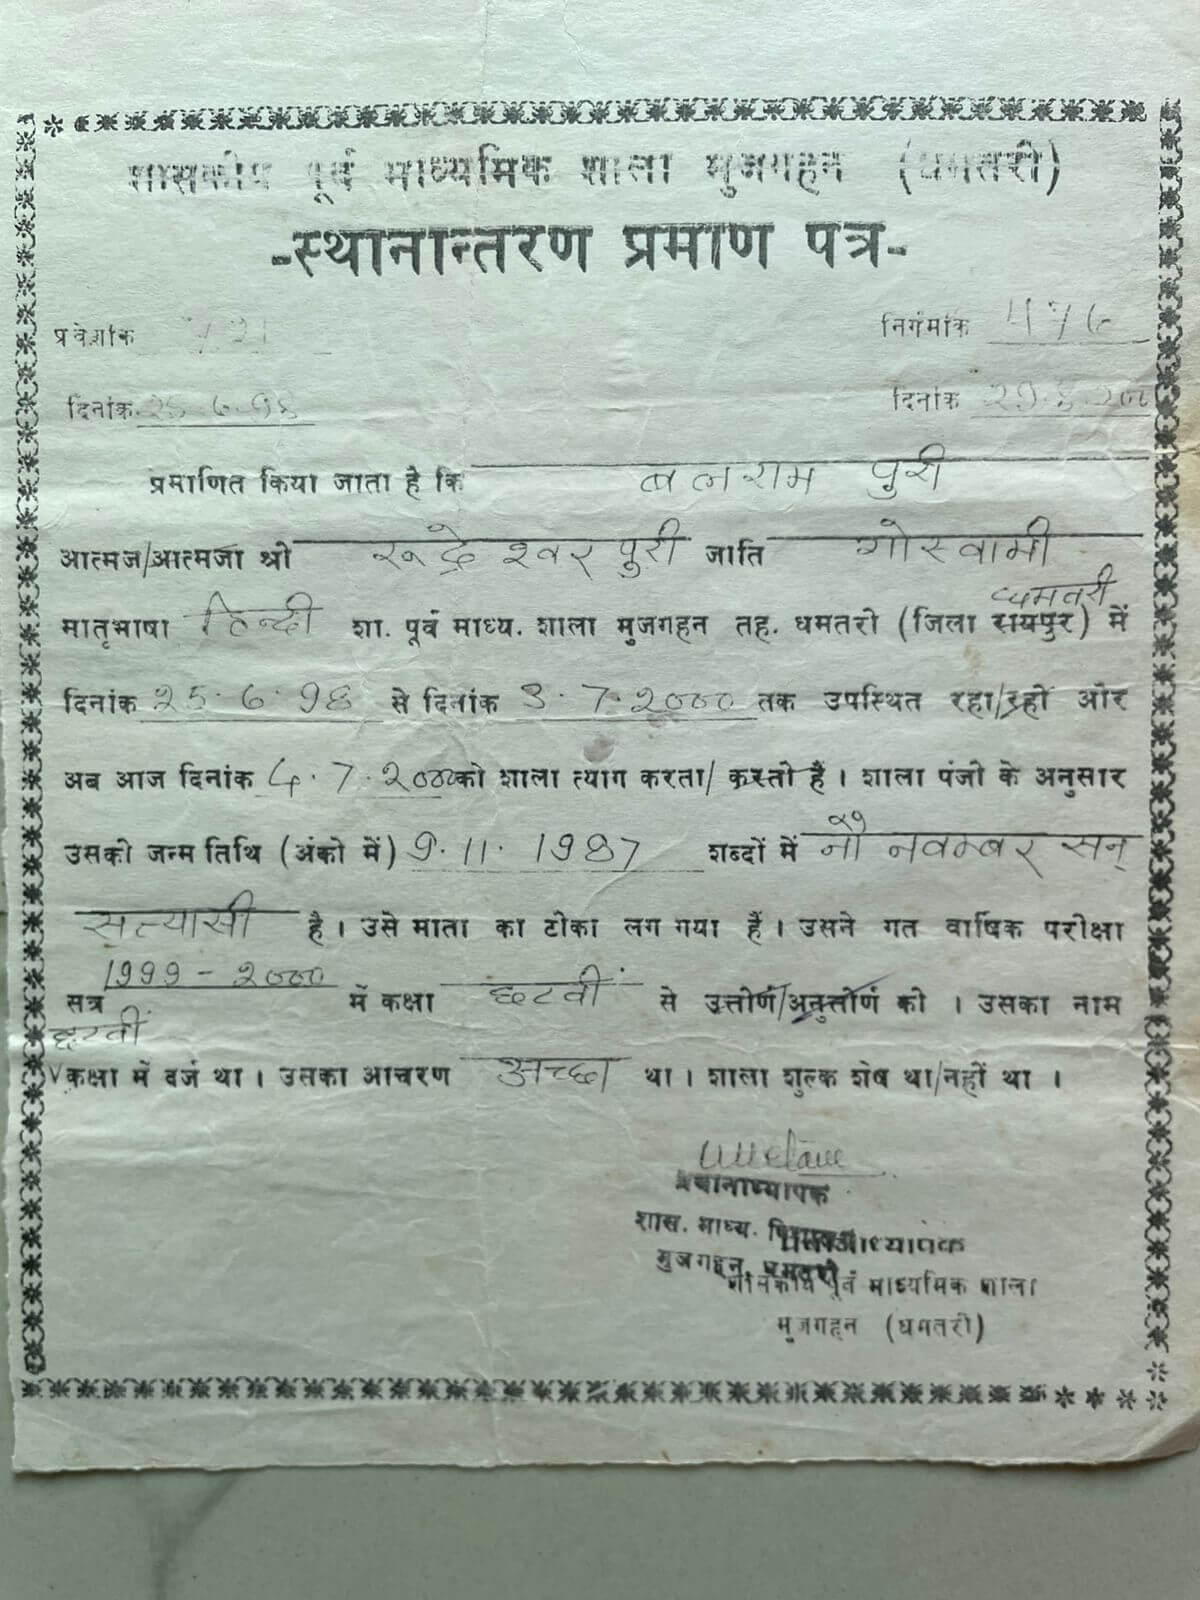 शासकीय पूर्व माध्यमिक शाला मुजगहन (धमतरी)
-स्थानान्तरण प्रमाण पत्र-
प्रवेशांक निर्गमांक
दिनांक दिनांक
प्रमाणित किया जाता है कि बलराम पुरी
आत्मज/आत्मजा श्री रूद्रेश्वर पुरी जाति गोस्वामी
धमतरी
मातृभाषा हिन्दी शा. पूर्व माध्य. शाला मुजगहन तह. धमतरी (जिला रायपुर) में
दिनांक 25.6.98 से दिनांक 3.7.2000 तक उपस्थित रहा/रही और
अब आज दिनांक 4.7.2000 को शाला त्याग करता/करती है । शाला पंजी के अनुसार
उसकी जन्म तिथि (अंको में) 9.11.1987 शब्दों में नौ नवम्बर सन्
सत्यासी है । उसे माता का टीका लग गया है । उसने गत वार्षिक परीक्षा
सत्र 1999-2000 में कक्षा छटवीं से उत्तीर्ण/अनुत्तीर्ण की । उसका नाम
छटवीं
कक्षा में दर्ज था । उसका आचरण अच्छा था । शाला शुल्क शेष था/नहीं था ।
प्रधानाध्यापक
शास. माध्य.
प्रधानाध्यापक
मुजगहन, धमतरी
शासकीय पूर्व माध्यमिक शाला
मुजगहन (धमतरी)